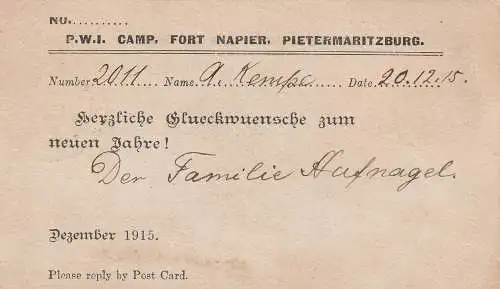 NO. ..........
P.W.I. CAMP, FORT NAPIER, PIETERMARITZBURG.
Number 2011 .... Name A. Kempe ..... Date 20.12.15.
Herzliche Glueckwuensche zum
neuen Jahre!
Der Familie Hufnagel.
Dezember 1915.
Please reply by Post Card.